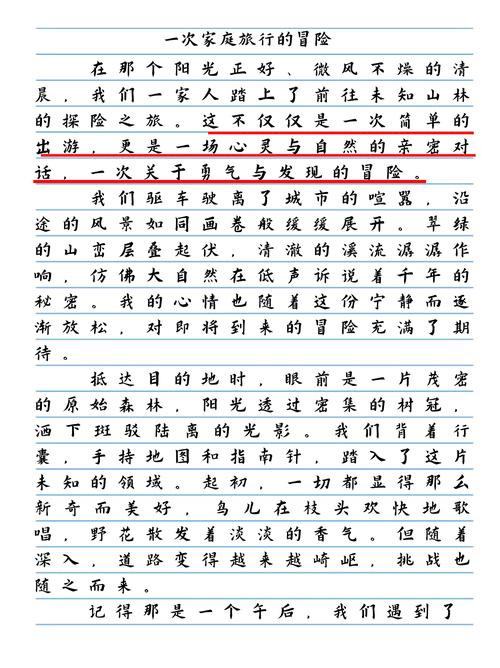 一次家庭旅行的冒险
在那个阳光正好、微风不燥的清
晨，我们一家人踏上了前往未知山林
的探险之旅。这不仅仅是一次简单的
出游，更是一场心灵与自然的亲密对
话，一次关于勇气与发现的冒险。
我们驱车驶离了城市的喧嚣，沿
途的风景如同画卷般缓缓展开。翠绿
的山峦层叠起伏，清澈的溪流潺潺作
响，仿佛大自然在低声诉说着千年的
秘密。我的心情也随着这份宁静而逐
渐放松，对即将到来的冒险充满了期
待。
抵达目的地时，眼前是一片茂密
的原始森林，阳光透过密集的树冠，
洒下斑驳陆离的光影。我们背着行
囊，手持地图和指南针，踏入了这片
未知的领域。起初，一切都显得那么
新奇而美好，鸟儿在枝头欢快地歌
唱，野花散发着淡淡的香气。但随着
深入，道路变得越来越崎岖，挑战也
随之而来。
记得那是一个午后，我们遇到了